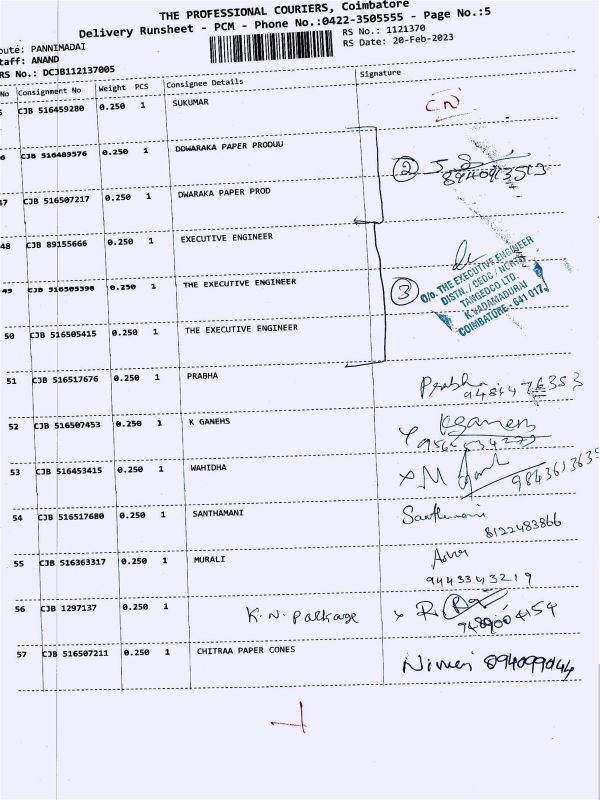 THE PROFESSIONAL COURIERS, Coimbatore
Delivery Runsheet - PCM - Phone No.:0422-3505555 - Page No.:5
oute: PANNIMADAI
RS No.: 1121370
taff: ANAND
RS Date: 20-Feb-2023
RS No.: DCJB112137005
No Consignment No Weight PCS Consignee Details Signature
CJB 516459280 0.250 1 SUKUMAR CN
6 CJB 516489576 0.250 1 DDWARAKA PAPER PRODUU
2
47 CJB 516507217 0.250 1 DWARAKA PAPER PROD
48 CJB 89155666 0.250 1 EXECUTIVE ENGINEER
49 CJB 516505398 0.250 1 THE EXECUTIVE ENGINEER
3
O/o. THE EXECUTIVE ENGINEER
DISTN./ CEDC / NORTH
TANGEDCO LTD.
K.VADAMADURAI
COIMBATORE - 641 017.
50 CJB 516505415 0.250 1 THE EXECUTIVE ENGINEER
51 CJB 516517676 0.250 1 PRABHA Prabha
52 CJB 516507453 0.250 1 K GANEHS KGanesh
53 CJB 516453415 0.250 1 WAHIDHA
54 CJB 516517680 0.250 1 SANTHAMANI Santhamani
8122483866
55 CJB 516363317 0.250 1 MURALI
9443343219
56 CJB 1297137 0.250 1 K.N. Package
57 CJB 516507211 0.250 1 CHITRAA PAPER CONES